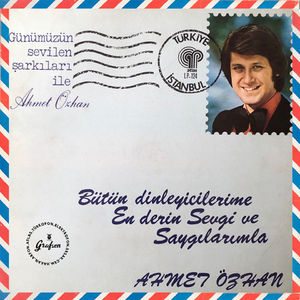 Günümüzün
sevilen
şarkıları
ile
Ahmet Özhan
TÜRKİYE
LP. 224
İSTANBUL
Bütün dinleyicilerime
En derin Sevgi ve
Saygılarımla
Grafson
AHMET ÖZHAN